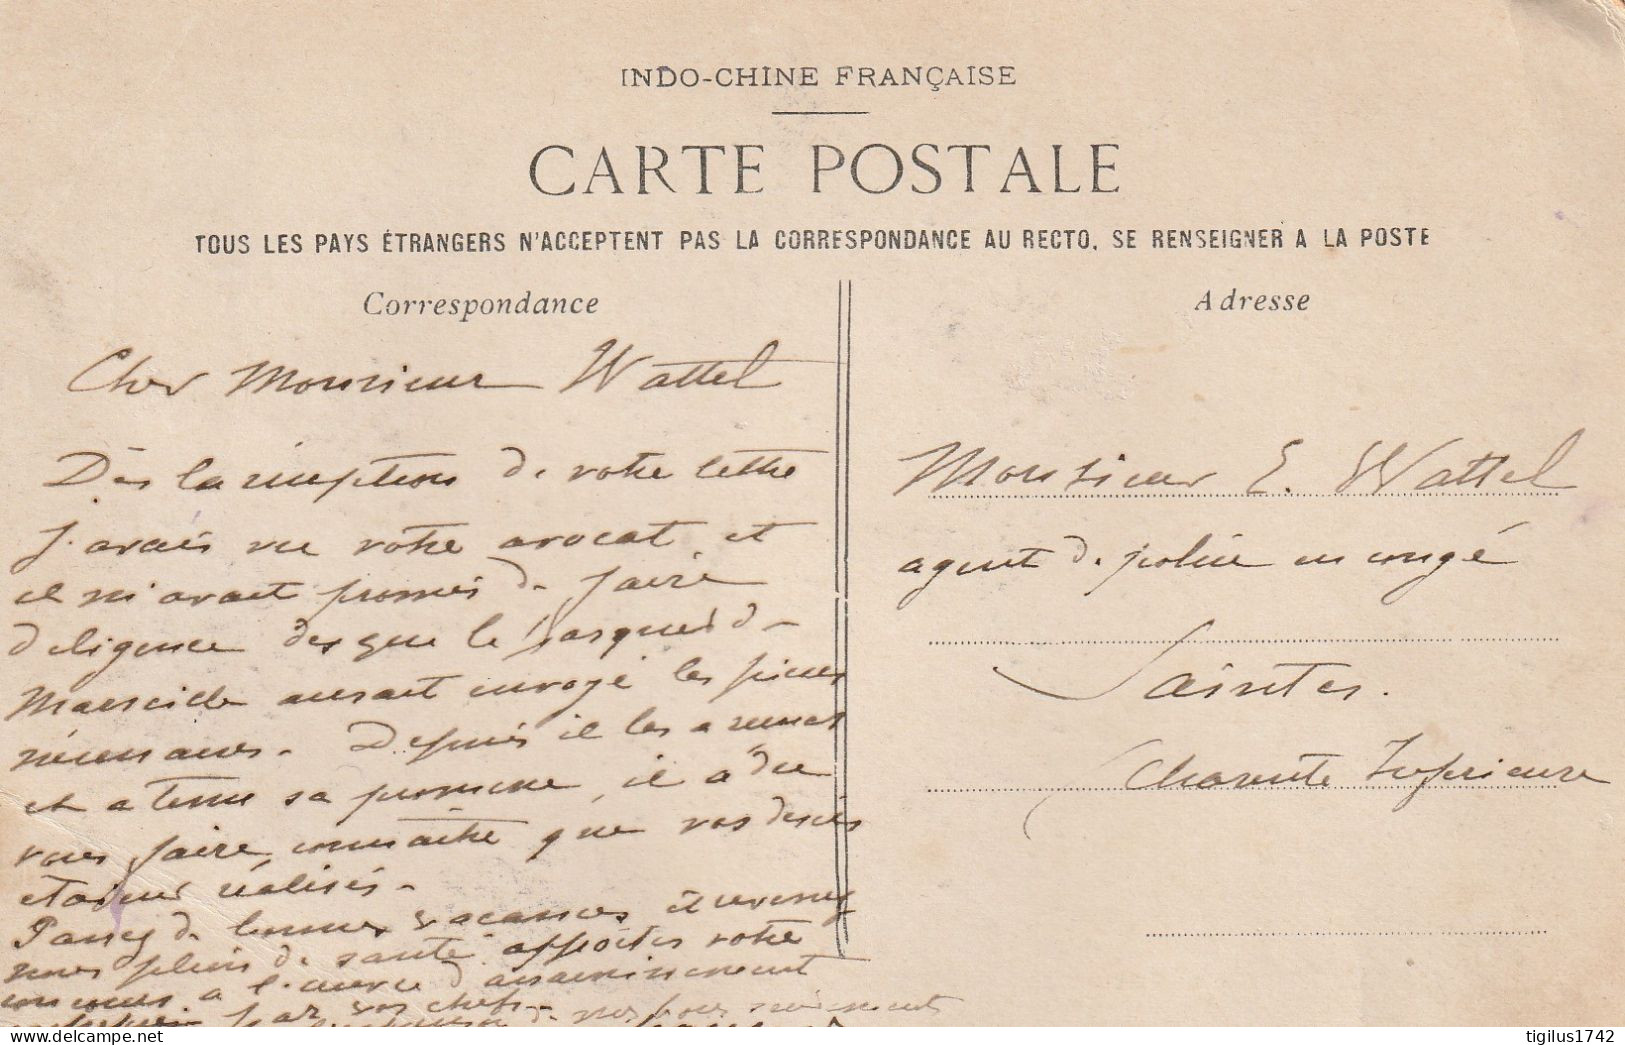 INDO-CHINE FRANÇAISE
CARTE POSTALE
TOUS LES PAYS ÉTRANGERS N'ACCEPTENT PAS LA CORRESPONDANCE AU RECTO. SE RENSEIGNER A LA POSTE
Correspondance
Cher Monsieur Wattel
Dès la réception de votre lettre
j'avais vu votre avocat et
il m'avait promis de faire
diligence dès que le parquet de
Marseille aurait envoyé les pièces
nécessaires. Depuis il les a reçues
et a tenu sa promesse, il a dû
vous faire connaître que vos désirs
étaient réalisés.
Passez de bonnes vacances et revenez
nous plein de santé apporter votre
concours à l'œuvre d'assainissement
par vos chefs
Adresse
Monsieur E. Wattel
agent de police en congé
Saintes.
Charente Inférieure
tigilus1742